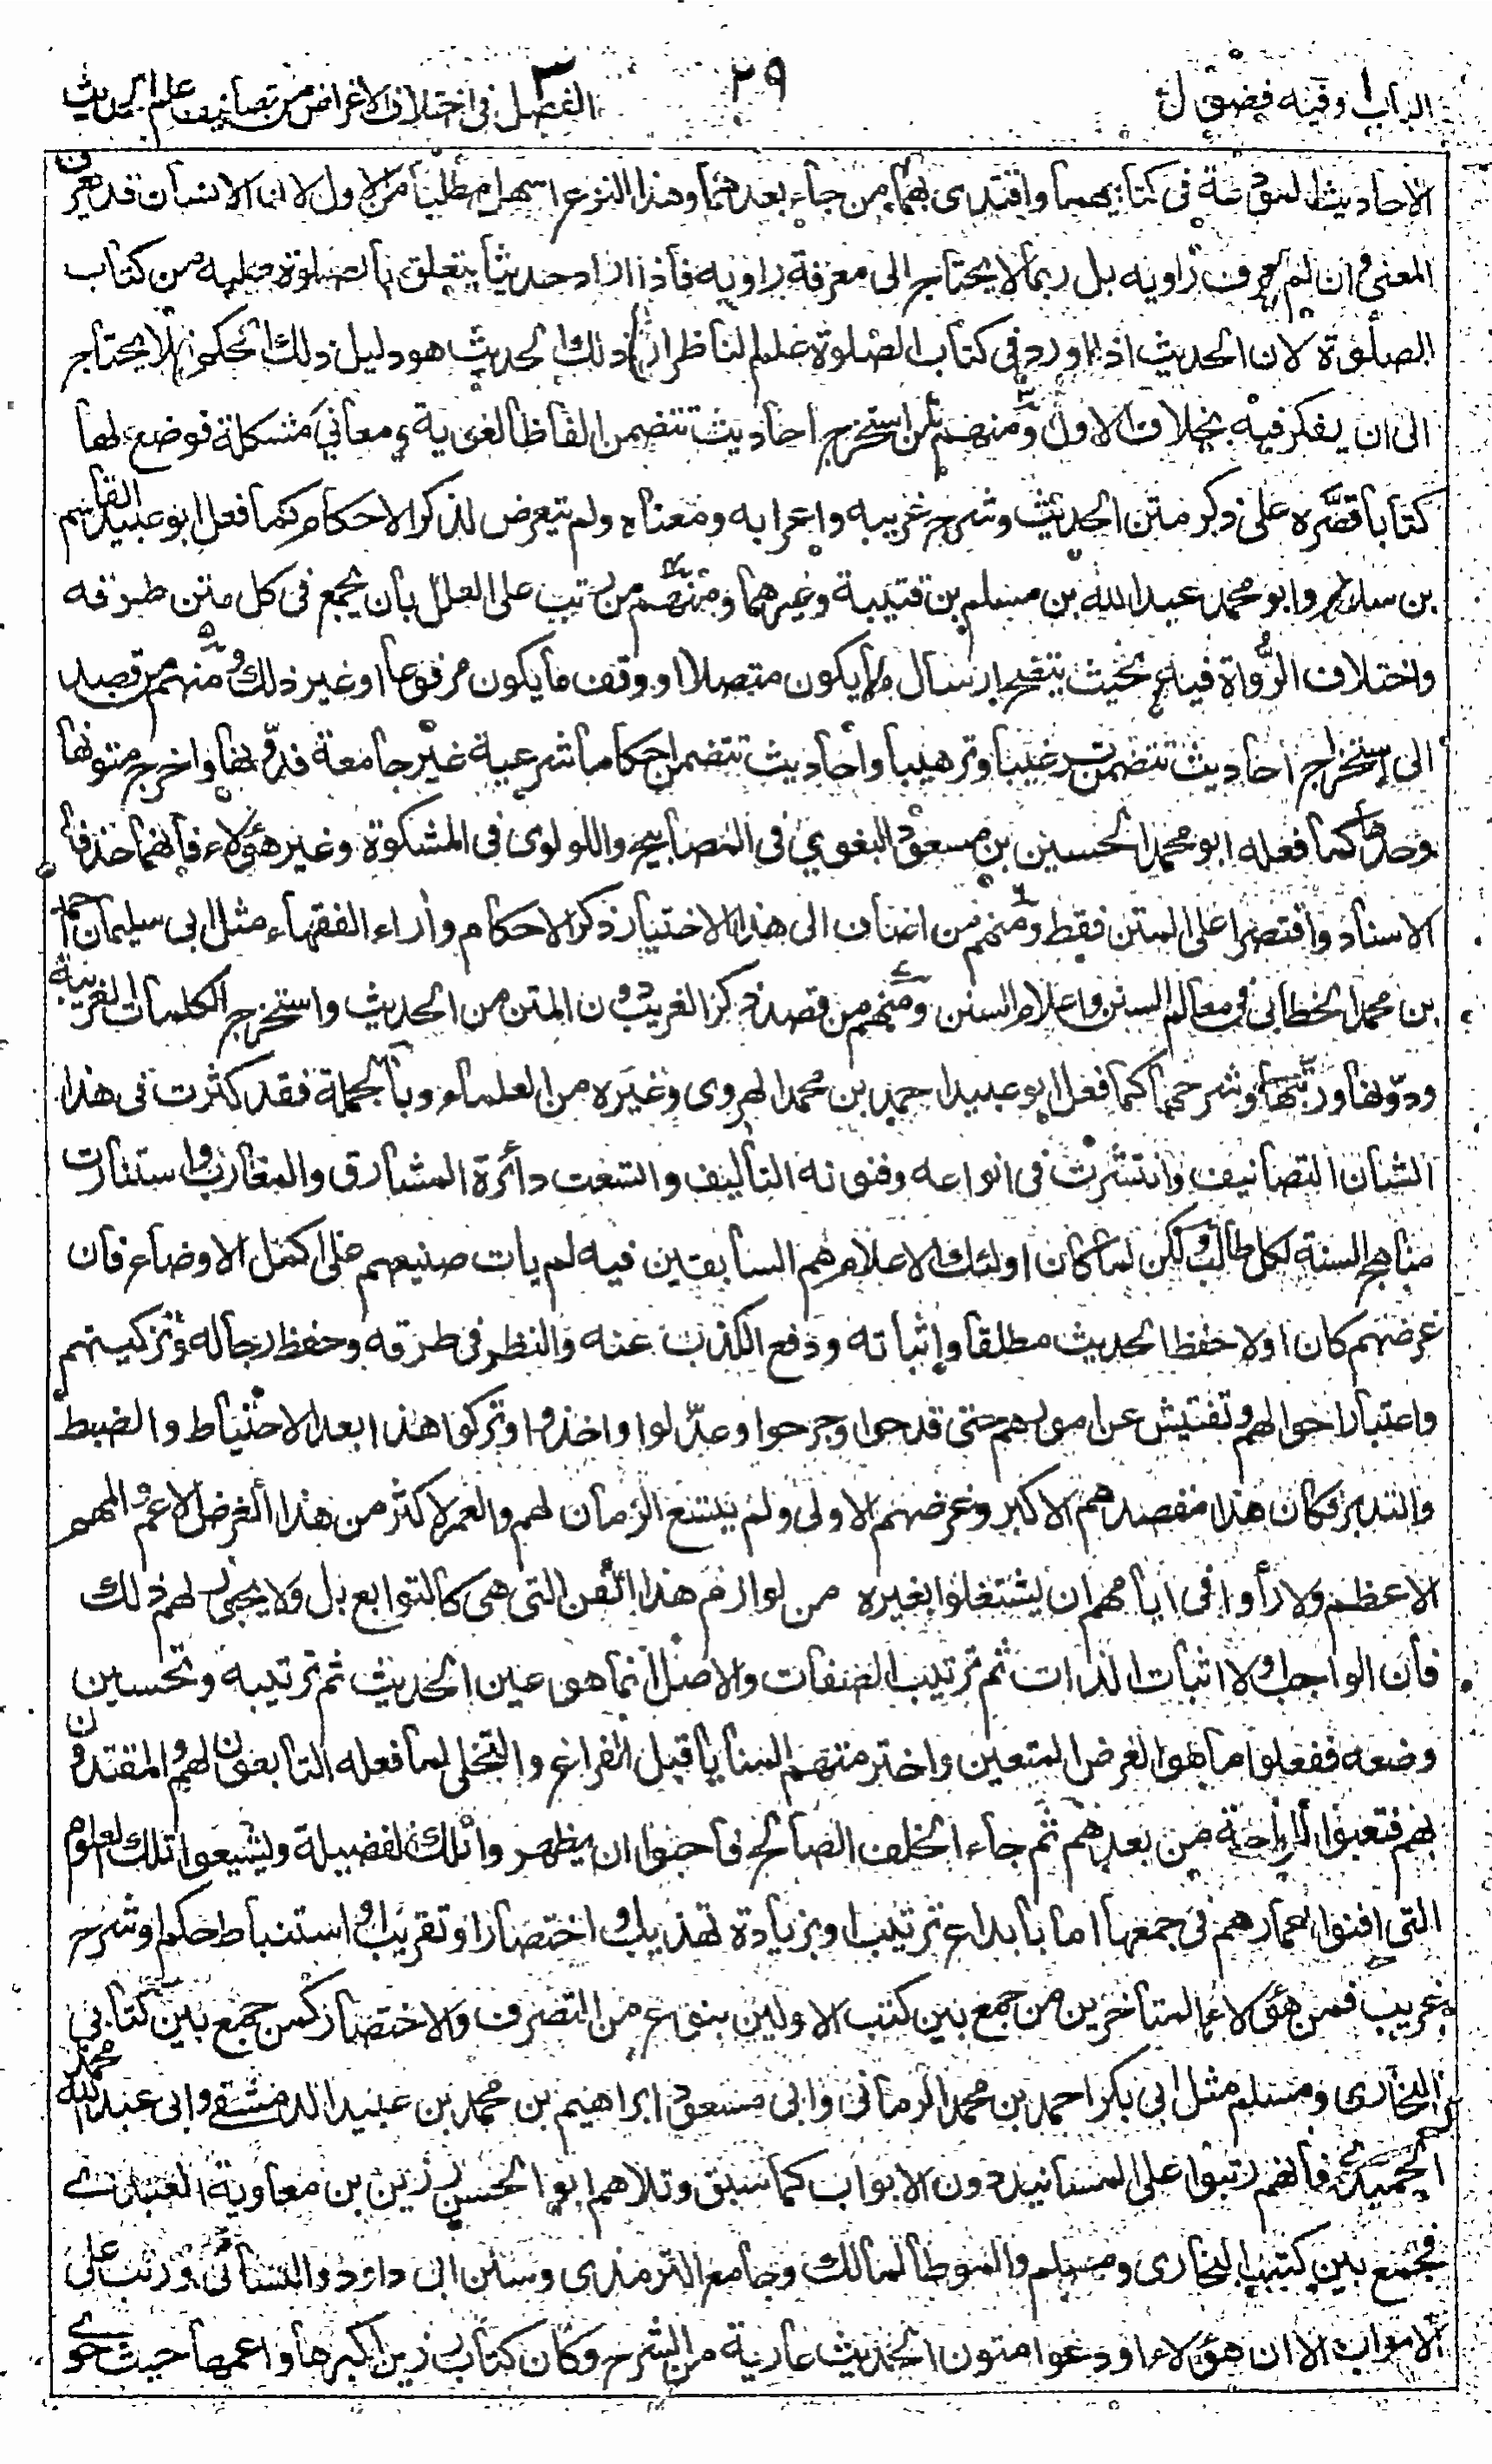 الباب ١ وفيه فصول
٢٩
الفصل ٣ في اختلاف الاغراض من تصانيف علم الحديث
الاحاديث المودعة في كتابيهما واقتدى بهما من جاء بعدهما وهذا النوع اسهل مطلبا من الاول لان الانسان قد يعرف
المعنى وان لم يعرف راويه بل ربما لا يحتاج الى معرفة راويه فاذا اراد حديثا يتعلق بالصلوة طلبه من كتاب
الصلوة لان الحديث اذا اورد في كتاب الصلوة علم الناظر ان ذلك الحديث هو دليل ذلك الحكم فلا يحتاج
الى ان يفكر فيه بخلاف الاول ومنهم من استخرج احاديث تتضمن الفاظا لغوية ومعاني مشكلة فوضع لها
كتابا قصره على ذكر متن الحديث وشرح غريبه واعرابه ومعناه ولم يتعرض لذكر الاحكام كما فعل ابو عبيد القاسم
بن سلام وابو محمد عبد الله بن مسلم بن قتيبة وغيرهما ومنهم من رتب على العلل بان يجمع في كل متن طرقه
واختلاف الرواة فيه بحيث يتضح ارسال ما يكون متصلا او وقف ما يكون مرفوعا او غير ذلك ومنهم من قصد
الى استخراج احاديث تتضمن ترغيبا وترهيبا واحاديث تتضمن احكاما شرعية غير جامعة فدونها واخرج متونها
وحدها كما فعله ابو محمد الحسين بن مسعود البغوي في المصابيح واللولوى في المشكوة وغير هؤلاء فانهما حذفا
الاسناد واقتصرا على المتن فقط ومنهم من اضاف الى هذا الاختيار ذكر الاحكام وأراء الفقهاء مثل ابى سليمان حمد
بن محمد الخطابى في معالم السنن واعلام السنن ومنهم من قصد ذكر الغريب دون المتن من الحديث واستخرج الكلمات الغريبة
ودونها ورتبها وشرحها كما فعل ابو عبيد احمد بن محمد الهروى وغيره من العلماء وبالجملة فقد كثرت في هذا
الشان التصانيف وانتشرت في انواعه وفنونه التأليف واتسعت دائرة المشارق والمغارب واستنارت
مناهج السنة لكل طالب ولكن لما كان اولئك الاعلام هم السابقين فيه لم يات صنيعهم على اكمل الاوضاع فان
غرضهم كان اولا حفظ الحديث مطلقا واثباته ودفع الكذب عنه والنظر في طرقه وحفظ رجاله وتزكيتهم
واعتبار احوالهم وتفتيش عن امورهم حتى قدحوا وجرحوا وعدلوا واخذوا وتركوا هذا بعد الاحتياط والضبط
والتدبر فكان هذا مقصدهم الاكبر وغرضهم الاولى ولم يتسع الزمان لهم والعمر لاكثر من هذا الغرض الاعم والمهم
الاعظم ولا رأوا في ايامهم ان يشتغلوا بغيره من لوازم هذا الفن التى هي كالتوابع بل ولا يجوز لهم ذلك
فان الواجب اولا اثبات الذات ثم ترتيب الصفات والاصل انما هو عين الحديث ثم ترتيبه وتحسين
وضعه ففعلوا ما هو الغرض المتعين واخترمتهم المنايا قبل الفراغ والتخلى لما فعله التابعون لهم والمقتدون
بهم فتعبوا لراحة من بعدهم ثم جاء الخلف الصالح فاحبوا ان يظهروا تلك الفضيلة ويشيعوا تلك العلوم
التى افنوا اعمارهم في جمعها اما بابداع ترتيب او بزيادة تهذيب او اختصار او تقريب او استنباط حكم او شرح
غريب فمن هؤلاء المتاخرين من جمع بين كتب الاولين بنوع من التصرف والاختصار كمن جمع بين كتابى
البخارى ومسلم مثل ابى بكر احمد بن محمد الرمانى وابى مسعود ابراهيم بن محمد بن عبيد الدمشقى وابى عبد الله محمد
الحميدى فانهم رتبوا على المسانيد دون الابواب كما سبق وتلاهم ابو الحسن رزين بن معاوية العبدرى
فجمع بين كتب البخارى ومسلم والموطا لمالك وجامع الترمذى وسنن ابى داود والنسائى ورتب على
الابواب الا ان هؤلاء اودعوا متون الحديث عارية من الشرح وكان كتاب رزين اكبرها واعمها حيث حوى